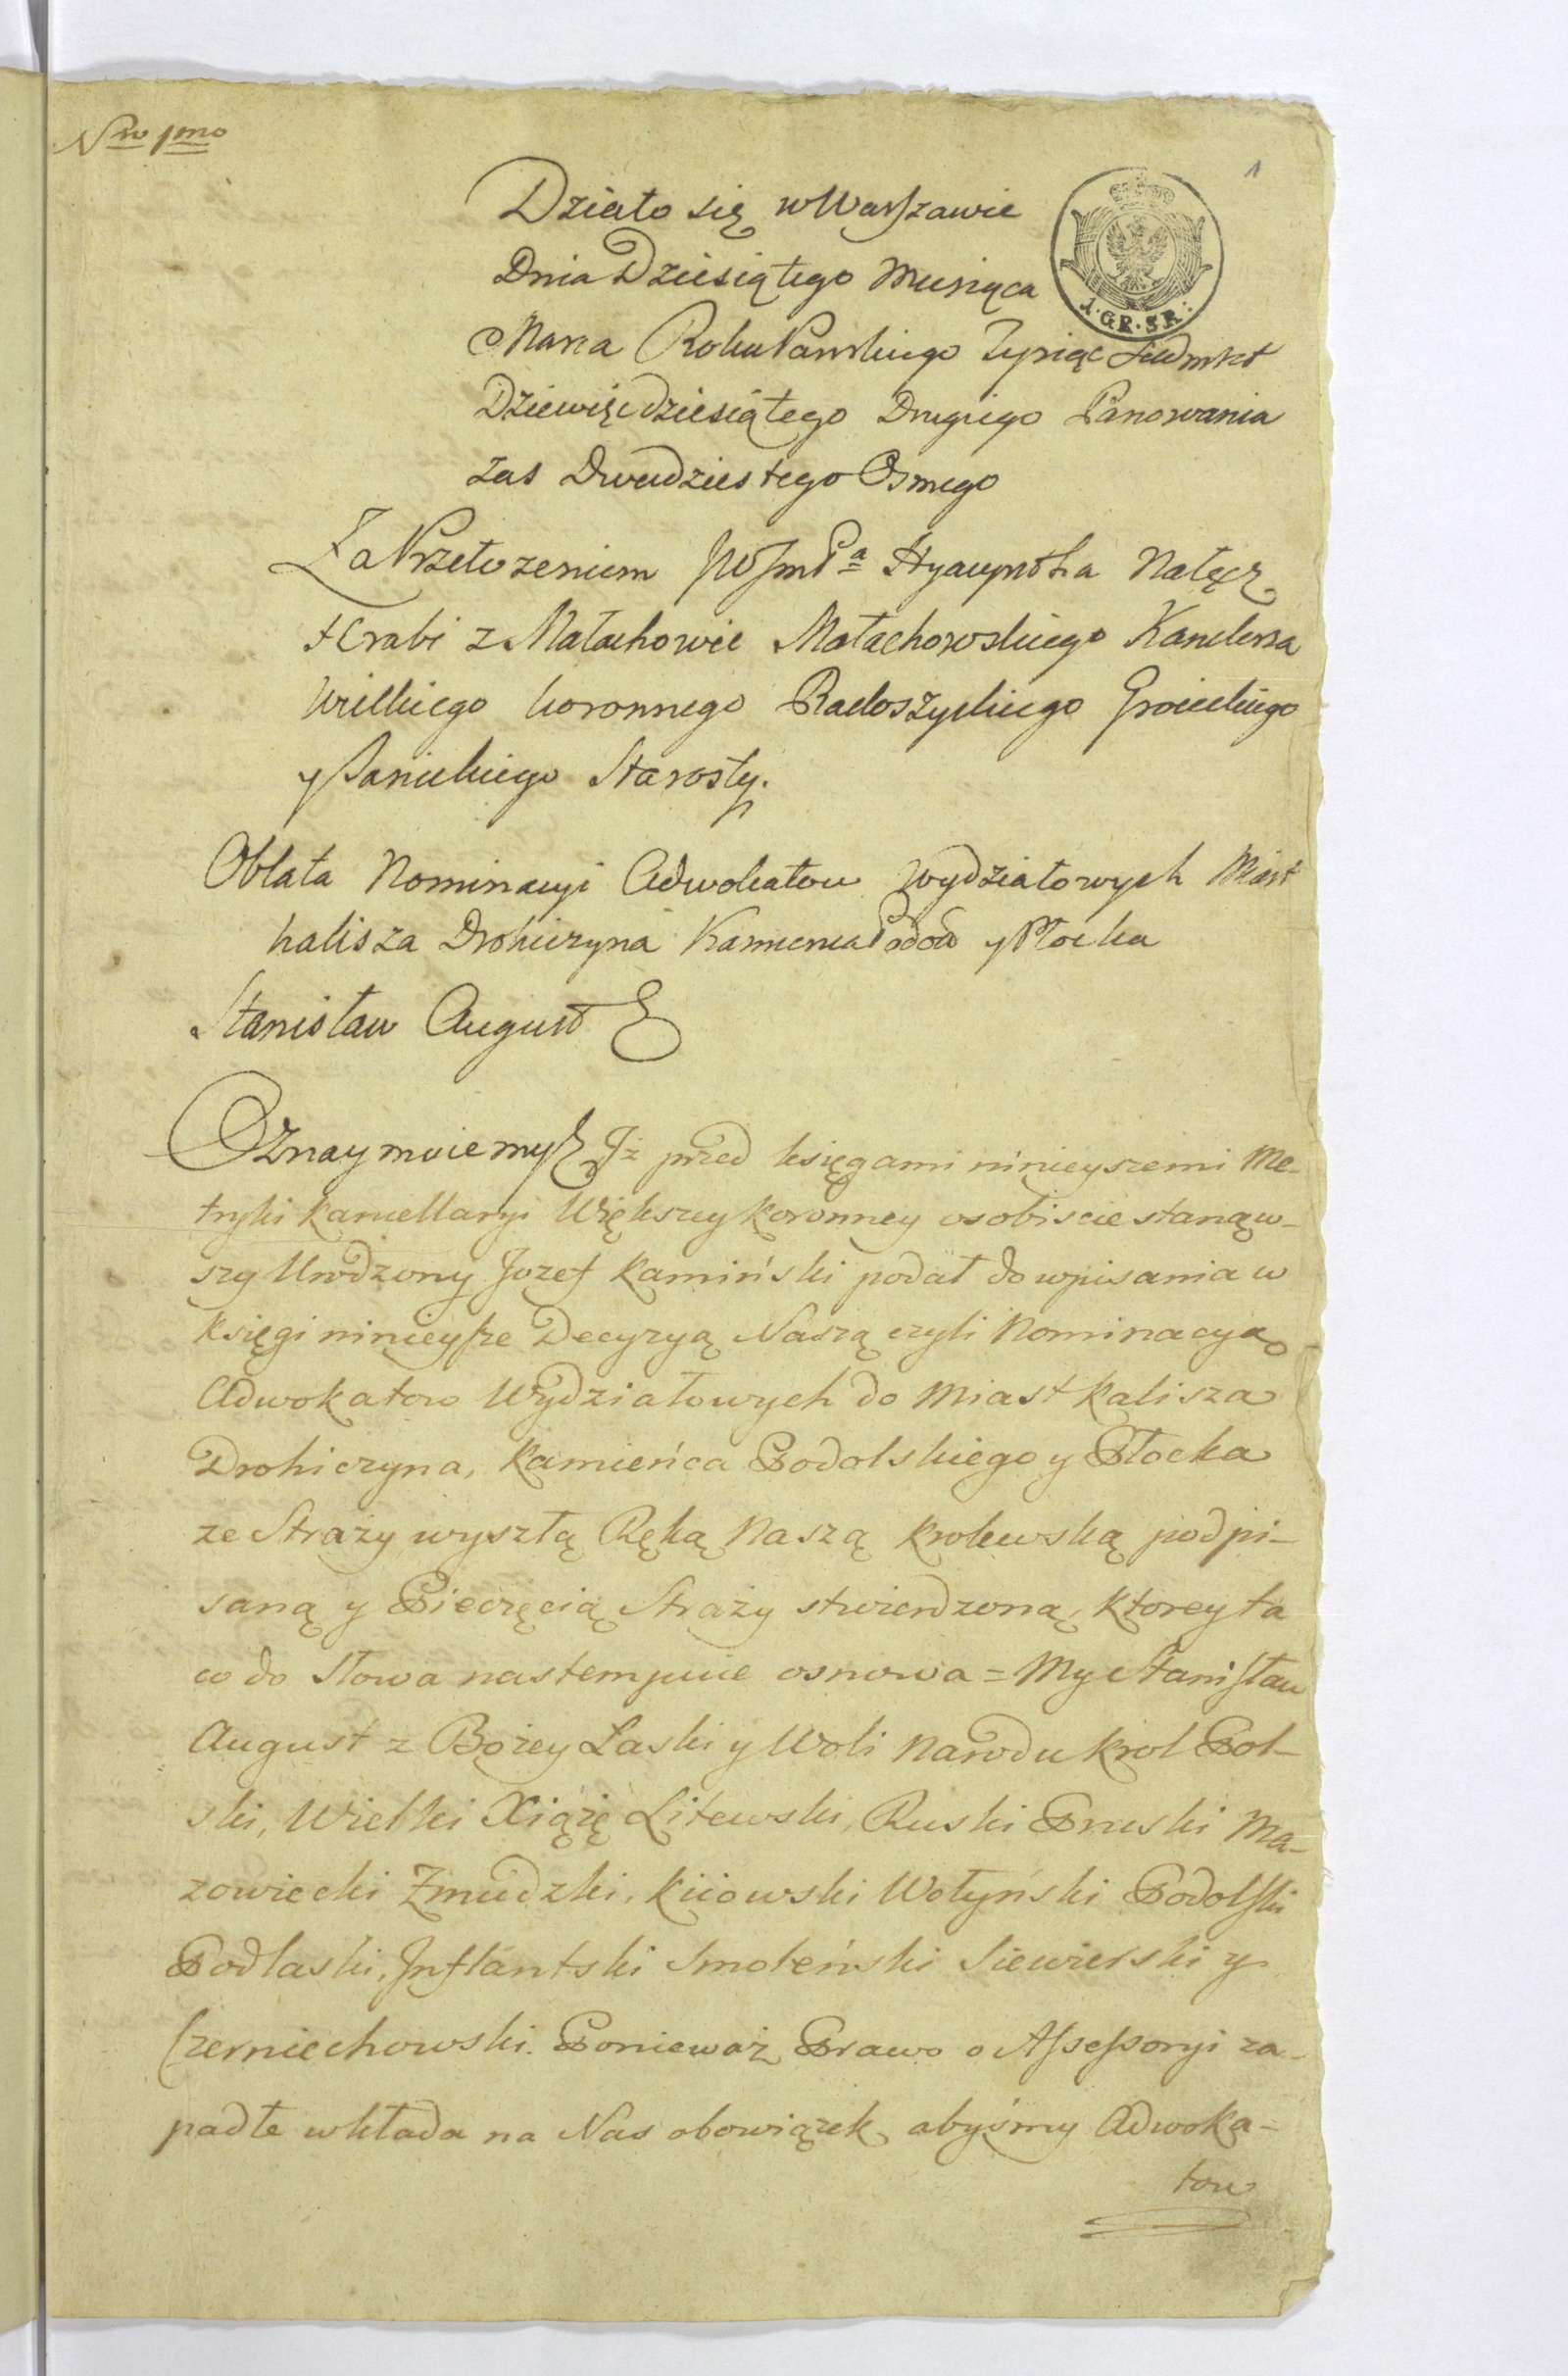 Nro 1mo
1
Działo się w Warszawie
Dnia Dziesiątego Miesiąca
1. GR. SR.
Marca Roku Pańskiego Tysiąc Siedmset
Dziewięćdziesiątego Drugiego Panowania
zas Dwudziestego Osmego
Za Przełożeniem JWJmPa Hyacyntha Nałęcz
Hrabi z Małachowic Małachowskiego Kanclerza
Wielkiego koronnego Radoszyckiego Grodeckiego
y Starosty.
Oblata Nominacyi Adwokatow Wydziałowych Miast
kalisza Drohiczyna Kamienca Podol y Płocka
Stanisław August
Oznaymuiemy Iż przed księgami ninieyszemi Me-
tryki kancellaryi Większey koronney osobiscie stanąw-
szy Urodzony Jozef kamiński podał do wpisania w
księgi ninieysze Decyzyą Naszą czyli Nominacyą
Adwokatow Wydziałowych do Miast kalisza
Drohiczyna, kamieńca Podolskiego y Płocka
ze Straży wyszłą Ręką Naszą krolewską podpi-
saną y Pieczęcią Straży stwierdzoną, ktorey ta
co do słowa nastempuie osnowa = My Stanisław
August z Bożey Łaski y Woli Narodu krol Pol-
ski, Wielki Xiążę Litewski, Ruski Pruski Ma-
zowiecki Żmudzki, kiiowski Wołyński Podolski
Podlaski, Inflantski Smoleński Siewierski y
Czerniechowski. Ponieważ Prawo o Assessoryi za-
padłe wkłada na Nas obowiązek, abyśmy Adwoka-
tow